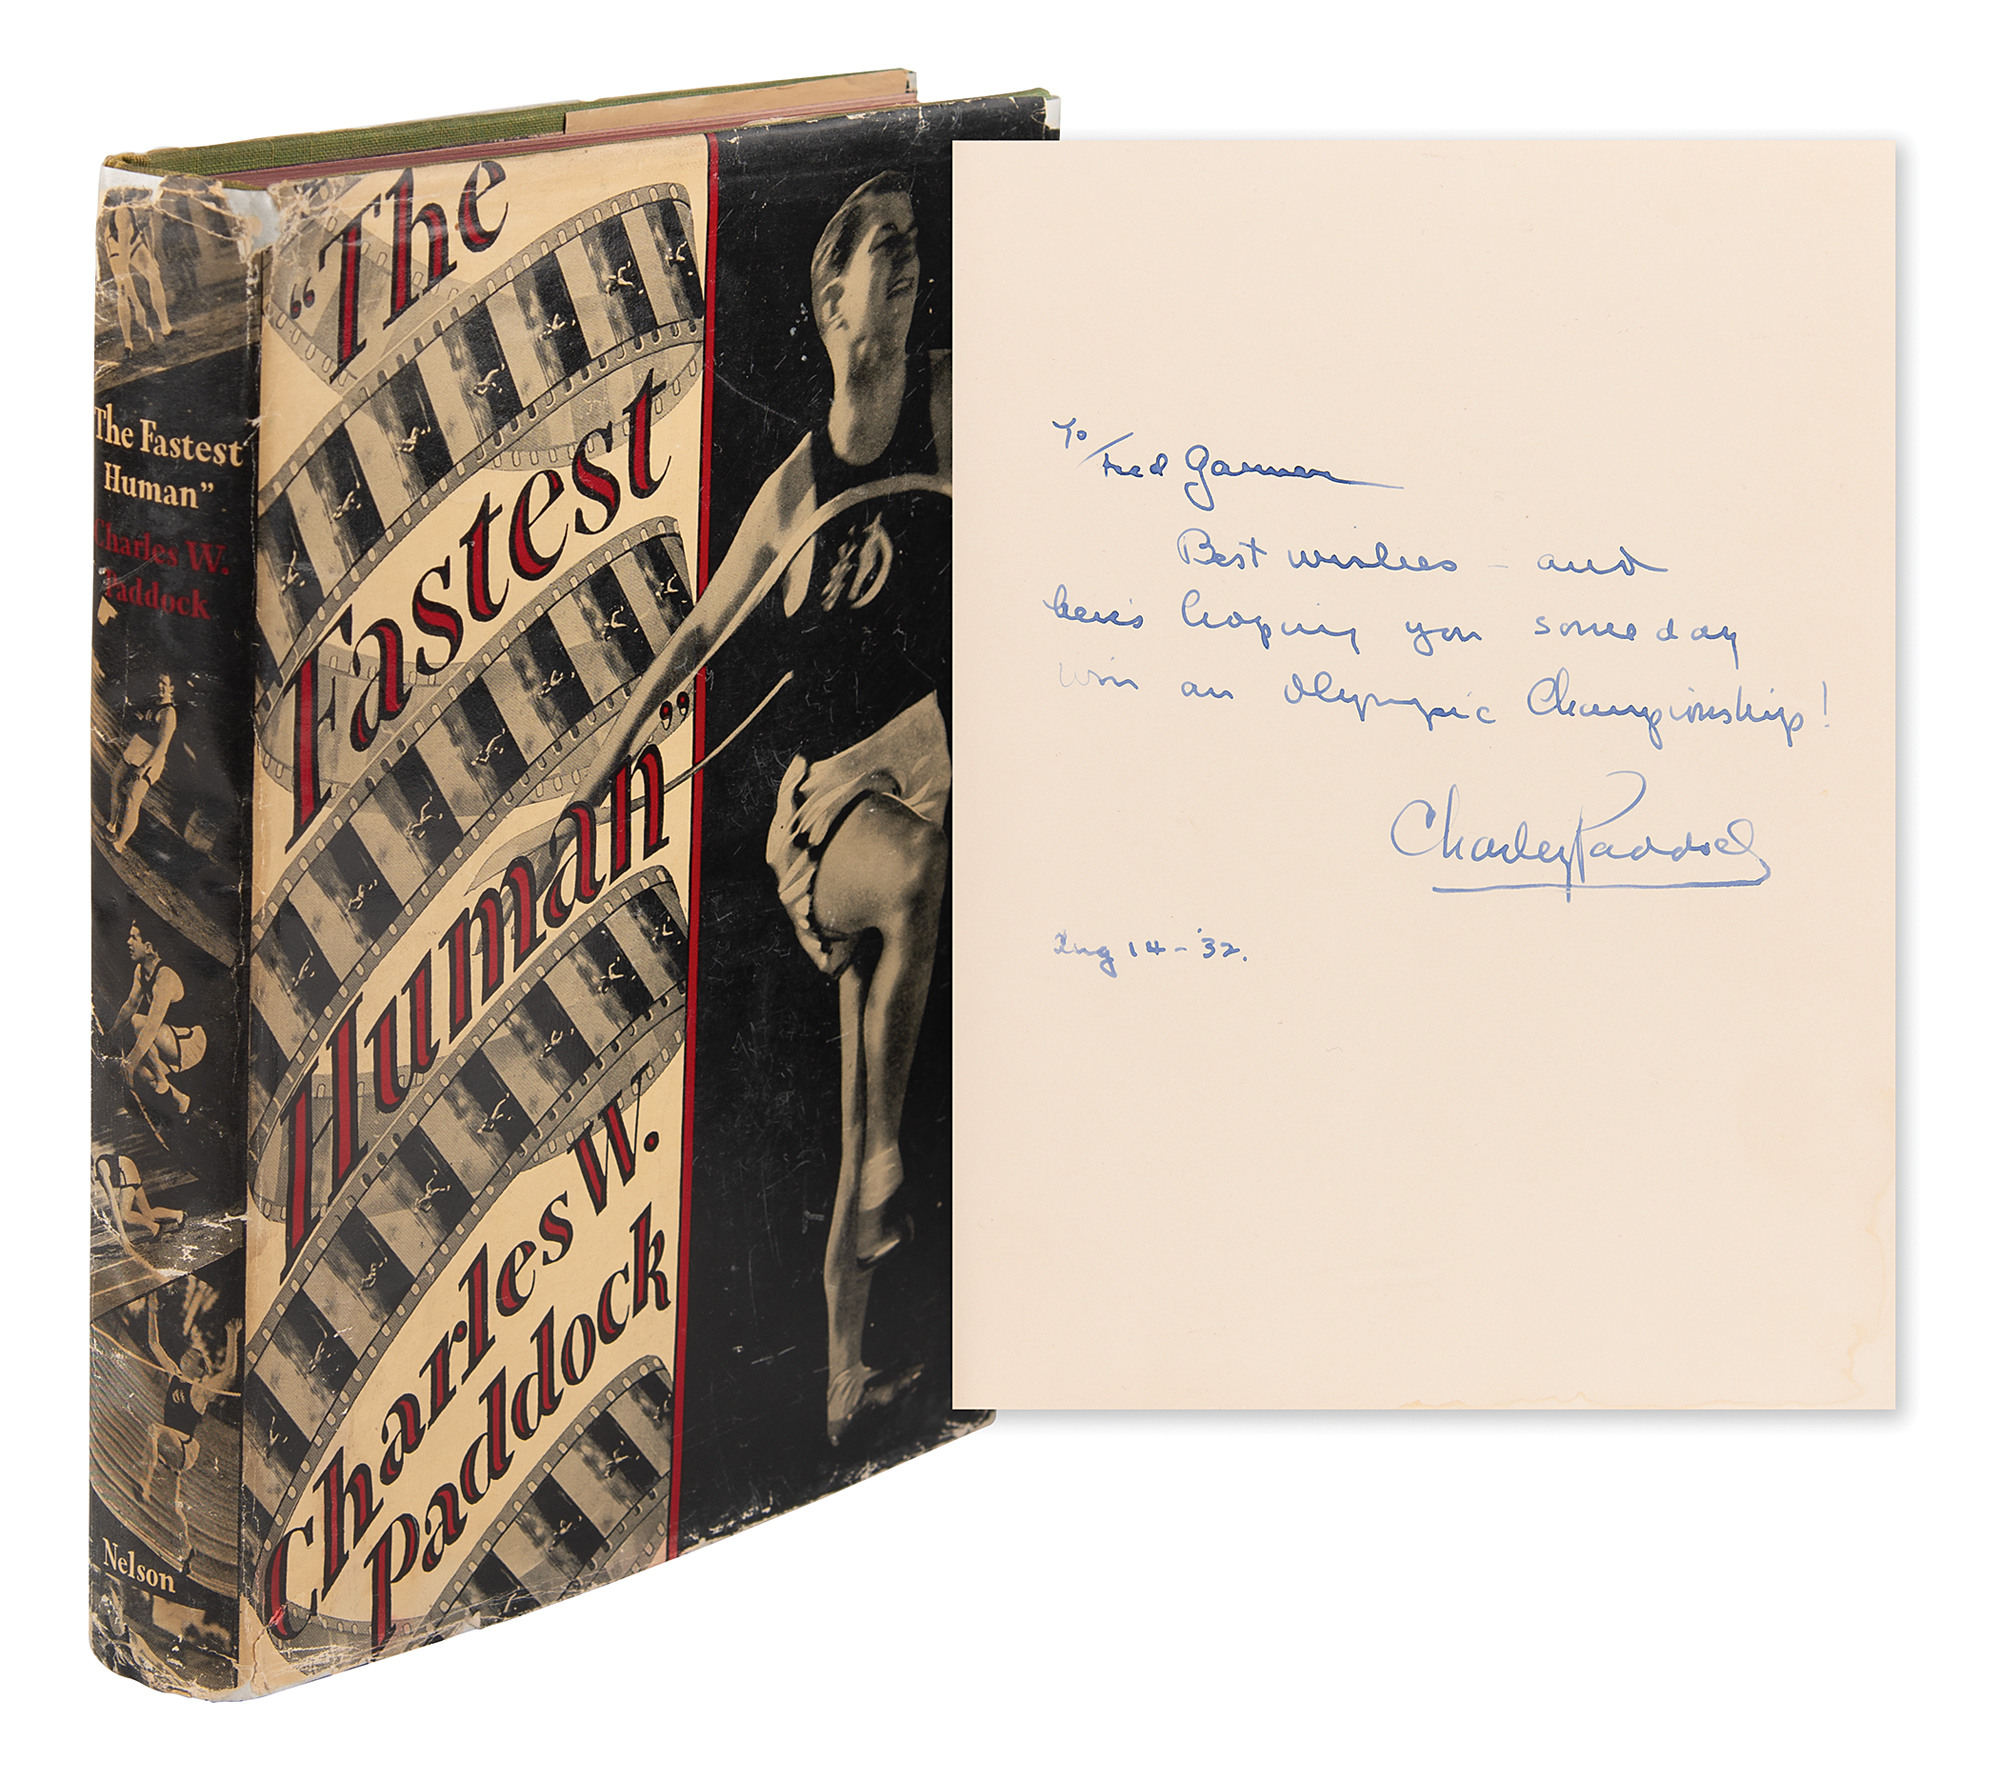 The Fastest
Human”
Charles W.
Paddock
Nelson
“The
Fastest
Human”
Charles W.
Paddock
To Fred
Best wishes – and
here's hoping you some day
win an Olympic Championship!
Charley Paddock
Aug 14 – '32.